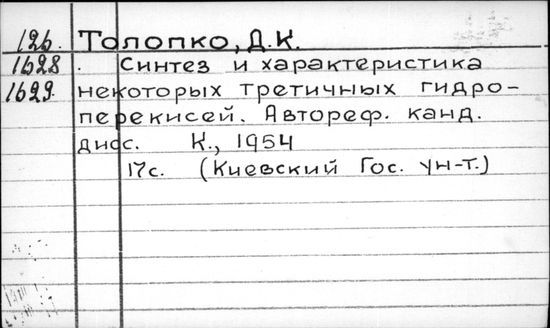 126. Толопко, Д.К.
1628 . Синтез и характеристика
1629. некоторых третичных гидро-
перекисей. Автореф. канд.
дисс. К., 1954
17с. (Киевский Гос. ун-т.)